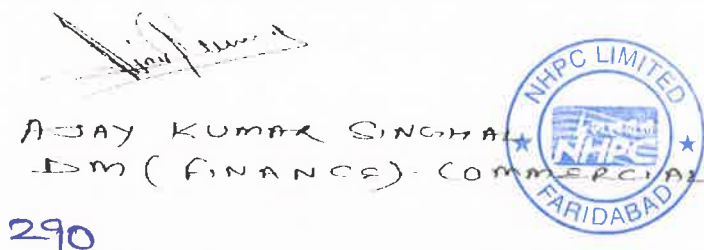 AJAY KUMAR SINGHAL
DM (FINANCE) COMMERCIAL
NHPC LIMITED
NHPC
FARIDABAD
290